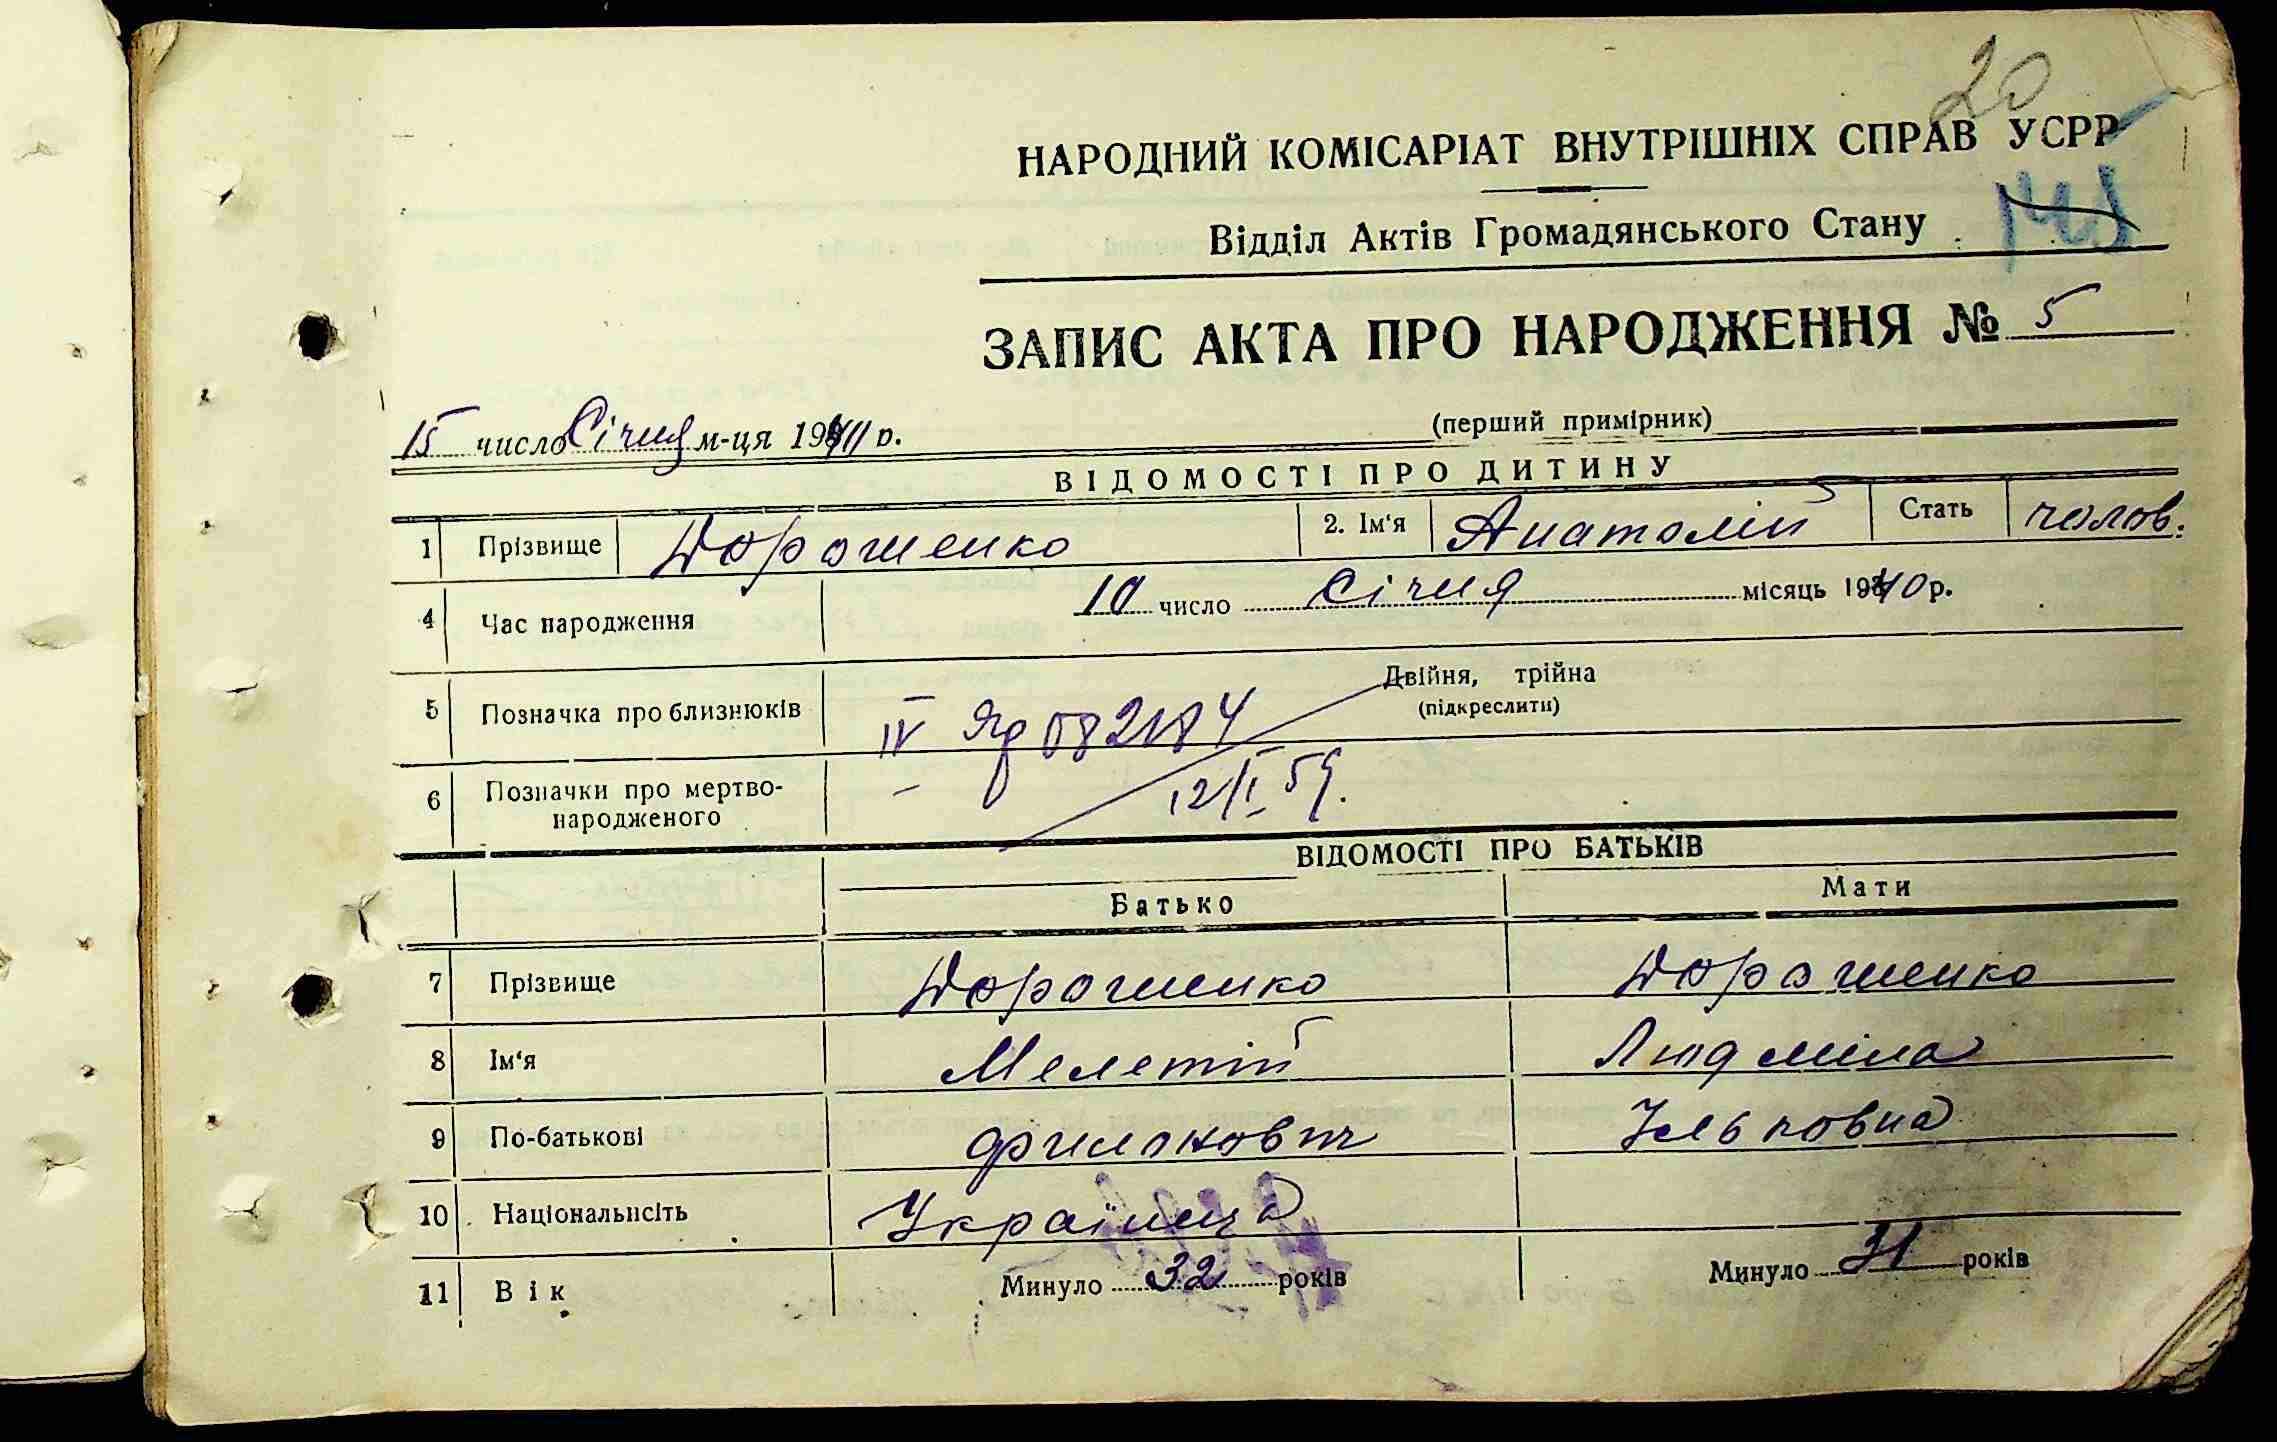 20
НАРОДНИЙ КОМІСАРІАТ ВНУТРІШНІХ СПРАВ УСРР
Відділ Актів Громадянського Стану
ЗАПИС АКТА ПРО НАРОДЖЕННЯ № 5
(перший примірник)
15 число Січня м-ця 194 р.
ВІДОМОСТІ ПРО ДИТИНУ
1 Прізвище Дорошенко 2. Ім'я Анатолій Стать чолов.
4 Час народження 10 число Січня місяць 1940 р.
5 Позначка про близнюків Двійня, трійна
(підкреслити)
IV Яд 082184
6 Позначки про мертво-
народженого – 12/I 59.
ВІДОМОСТІ ПРО БАТЬКІВ
Батько Мати
7 Прізвище Дорошенко Дорошенко
8 Ім'я Мелетій Людміла
9 По-батькові Филонович Ільковна
10 Національність Українці
11 Вік Минуло 32 років Минуло 31 років